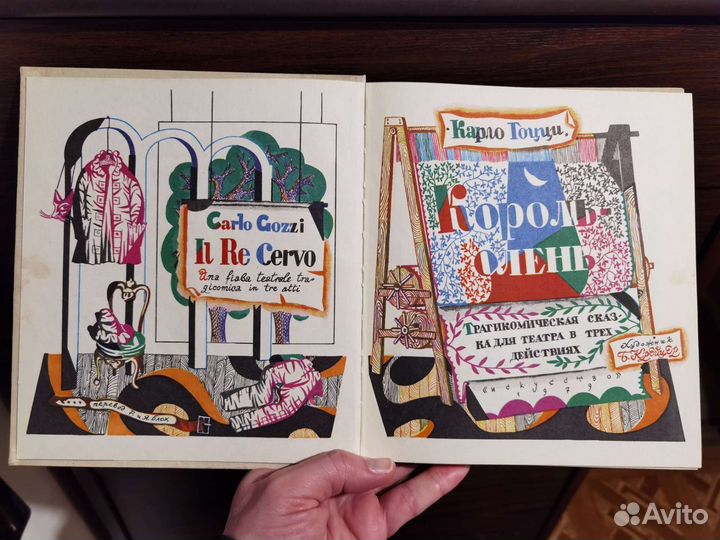 Carlo Gozzi
Il Re Cervo
Una fiaba teatrale tra-
gicomica in tre atti
перевод Р и я блох
Карло Гоцци.
Король-
олень
Трагикомическая сказ-
ка для театра в трех
действиях
Художник
искусство
1979
Avito